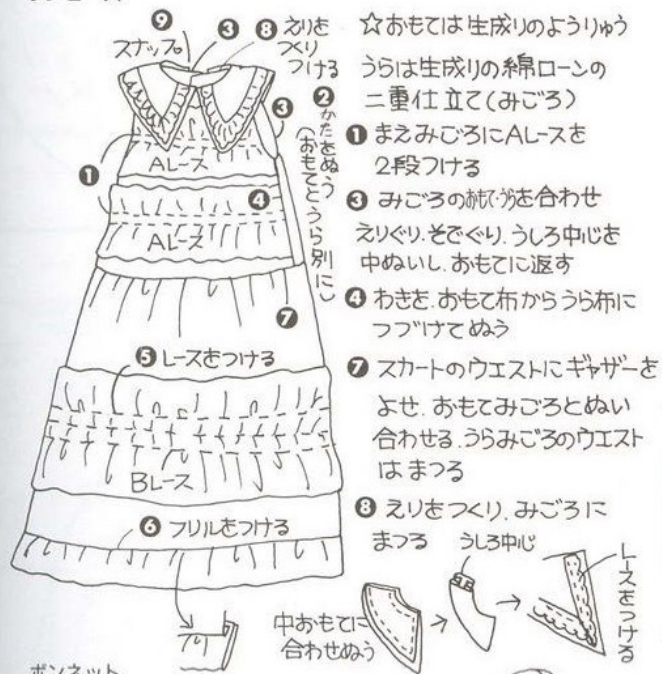 ❾
スナップ
❸
❽ えりを
つくり
つける
❸
❷ かたをぬう
(おもてとうら別に)
❶
Aレース
❹
Aレース
❼
❺ レースをつける
Bレース
❻ フリルをつける
☆おもては生成りのようりゅう
うらは生成りの綿ローンの
二重仕立て(みごろ)
❶ まえみごろにAレースを
2段つける
❸ みごろのおもて・うらを合わせ
えりぐり、そでぐり、うしろ中心を
中ぬいし、おもてに返す
❹ わきを、おもて布からうら布に
つづけてぬう
❼ スカートのウエストにギャザーを
よせ、おもてみごろとぬい
合わせる、うらみごろのウエスト
はまつる
❽ えりをつくり、みごろに
まつる
うしろ中心
中おもてに
合わせぬう
レースをつける
ボンネット